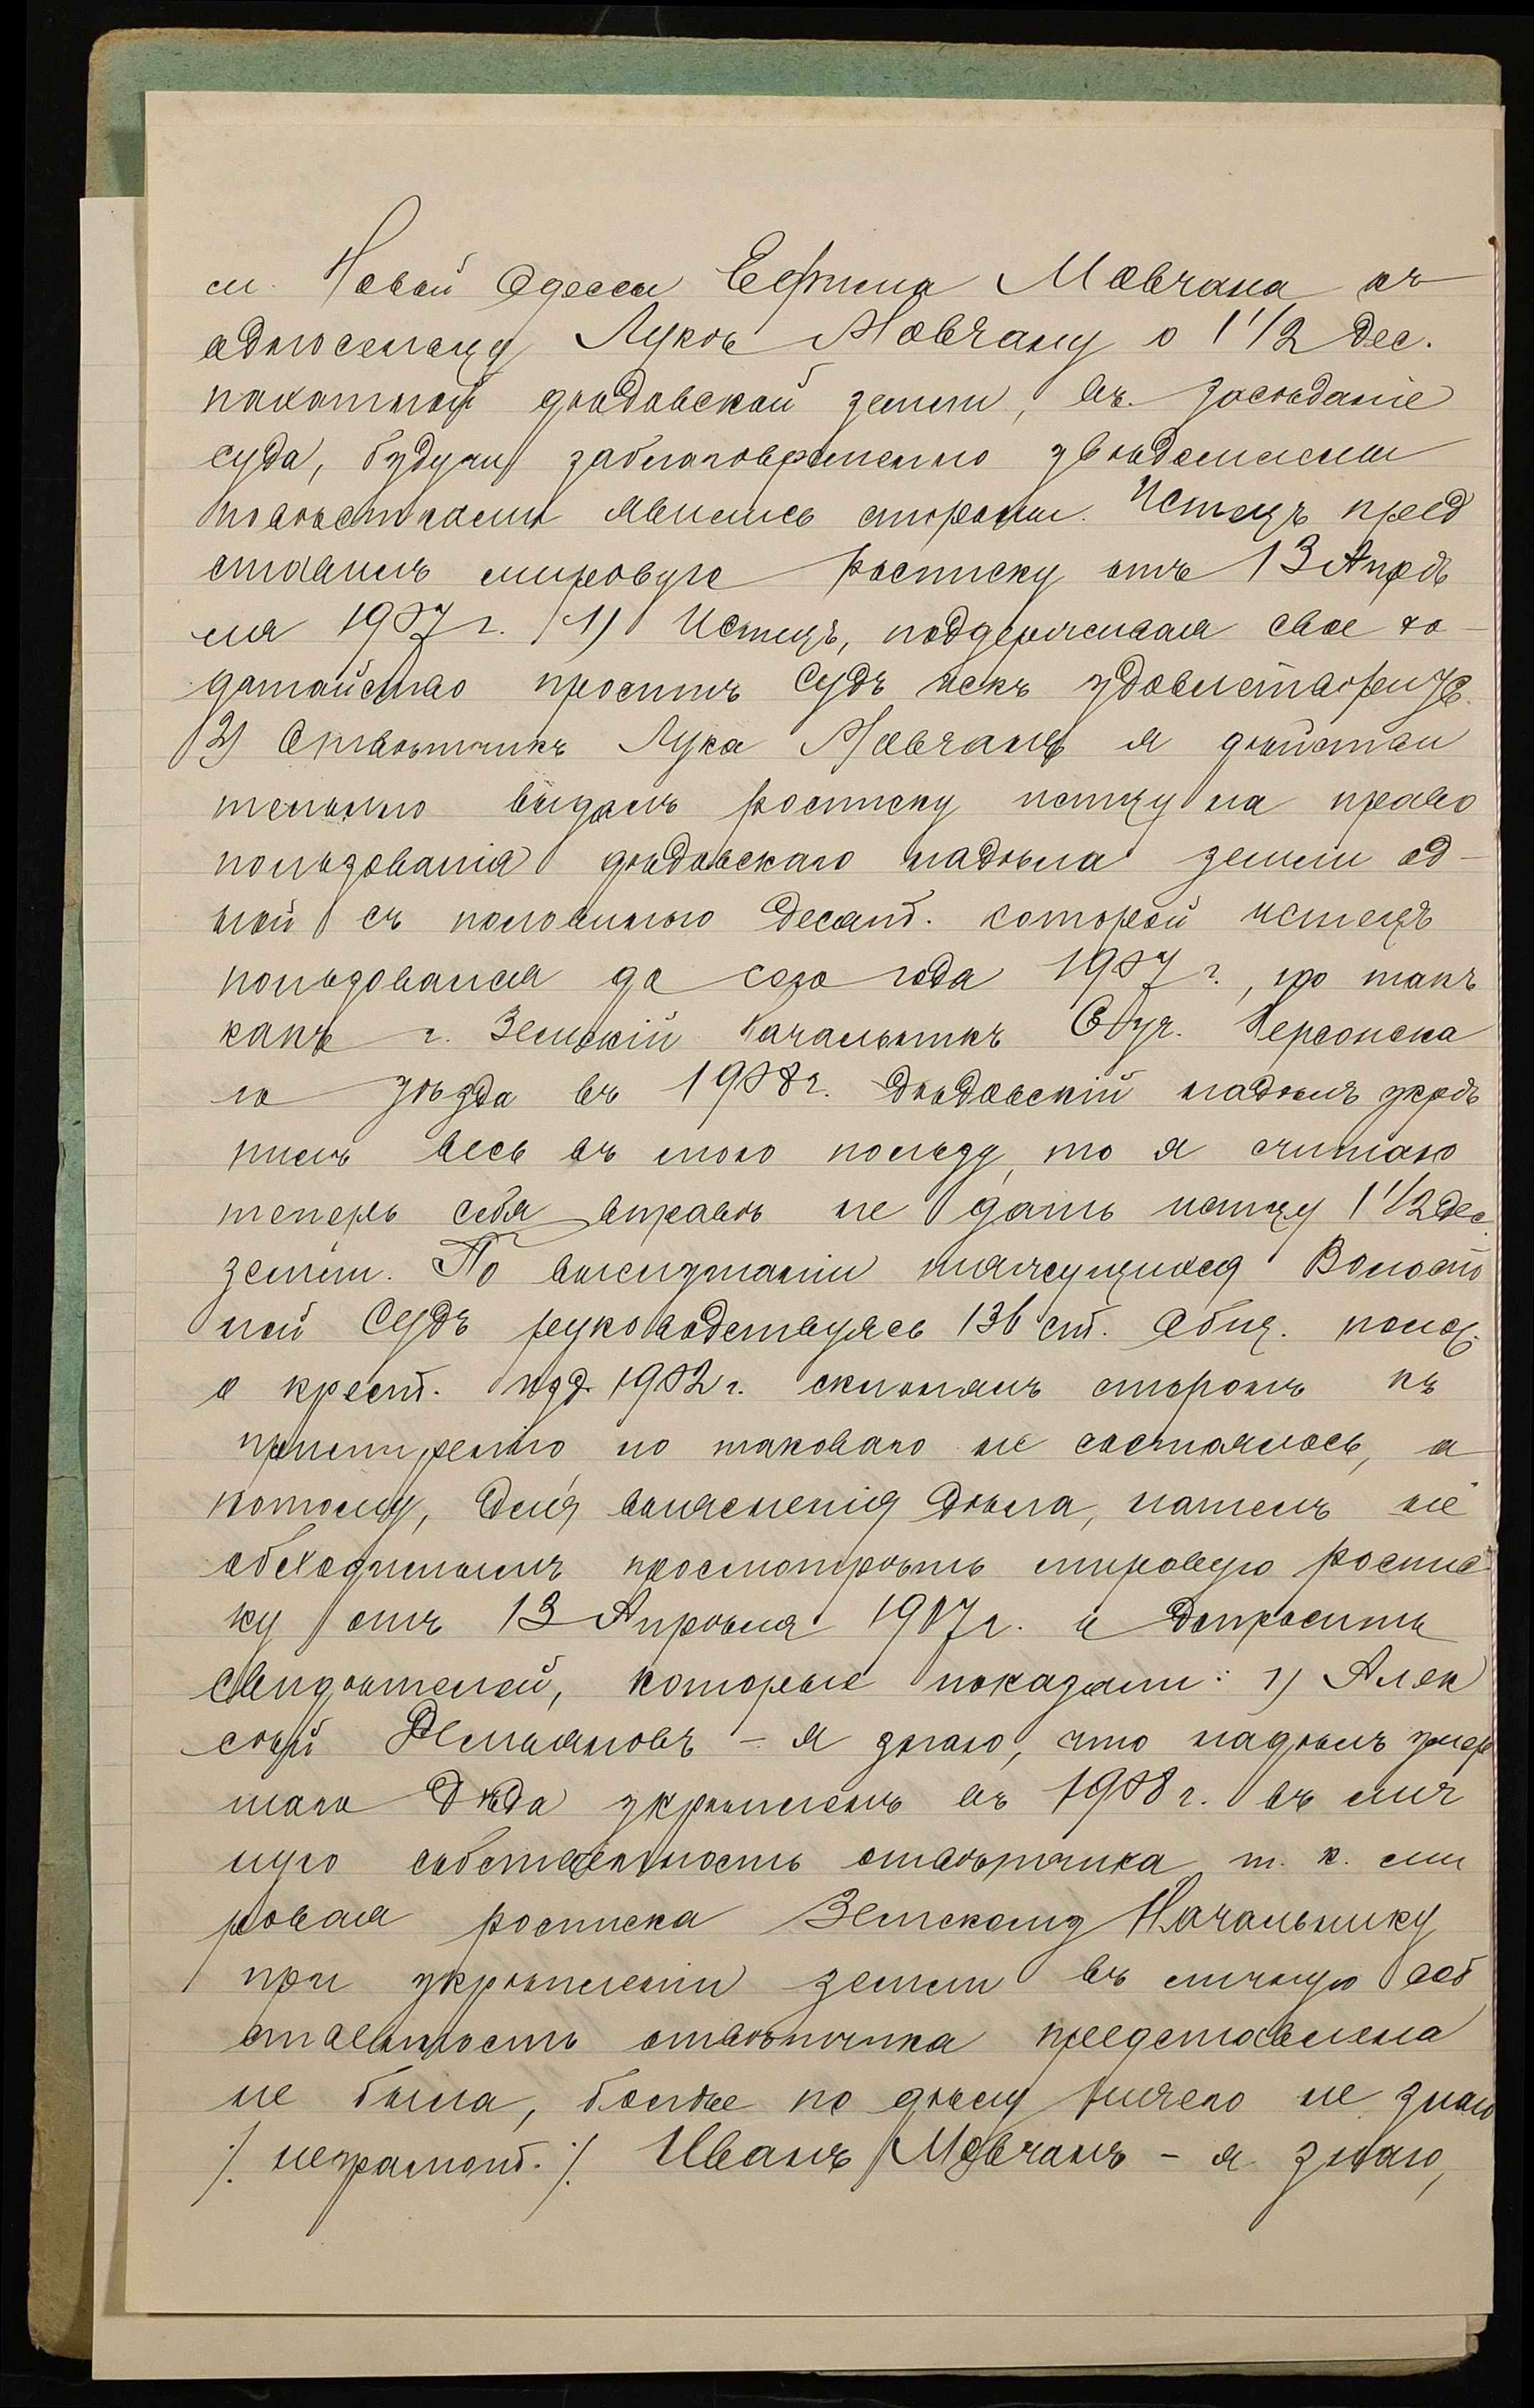 м. Новой Одессы Ефима Мовчана къ
односельцу Лукѣ Мовчану о 1 1/2 дес.
пахотной дѣдовской земли, въ засѣданіе
суда, будучи заблаговременно увѣдомлены
повѣстками явились стороны. Истецъ пред
ставилъ мировую росписку отъ 13 Апрѣ
ля 1907 г. 1) Истецъ, поддерживая свое хо-
датайство проситъ Судъ искъ удовлетворить.
2) Отвѣтчикъ Лука Мовчанъ я дѣйстви
тельно выдалъ росписку истцу на право
пользованія дѣдовскаго надѣла земли од-
ной съ половиною десят. которой истецъ
пользовался до сего года 1907 г., но такъ
какъ г. Земскій Начальникъ 6 уч. Херсонска
го уѣзда въ 1908 г. дѣдовскій надѣлъ укрѣ
пилъ весь въ мою пользу, то я считаю
теперь себя вправѣ не дать истцу 1 1/2 дес.
земли. По выслушаніи тяжущихся Волост
ной Судъ руководствуясь 136 ст. Общ. полож.
о крест. изд. 1902 г. склонялъ сторонъ къ
примиренію но таковаго не состоялось, а
потому, для выясненія дѣла, нашелъ не
обходимымъ просмотрѣть мировую роспис
ку отъ 13 Апрѣля 1907 г. и допросить
свидѣтелей, которые показали: 1) Алек
сѣй Демьяновъ - я знаю, что надѣлъ умер
шаго Дѣда укрѣпленъ въ 1908 г. въ лич
ную собственность отвѣтчика, т. к. ми
ровая росписка Земскому Начальнику
при укрѣпленіи земли въ личную соб
ственность отвѣтчика представлена
не была, болѣе по дѣлу ничего не знаю
/. неграмот. /. Иванъ Мовчанъ - я знаю,